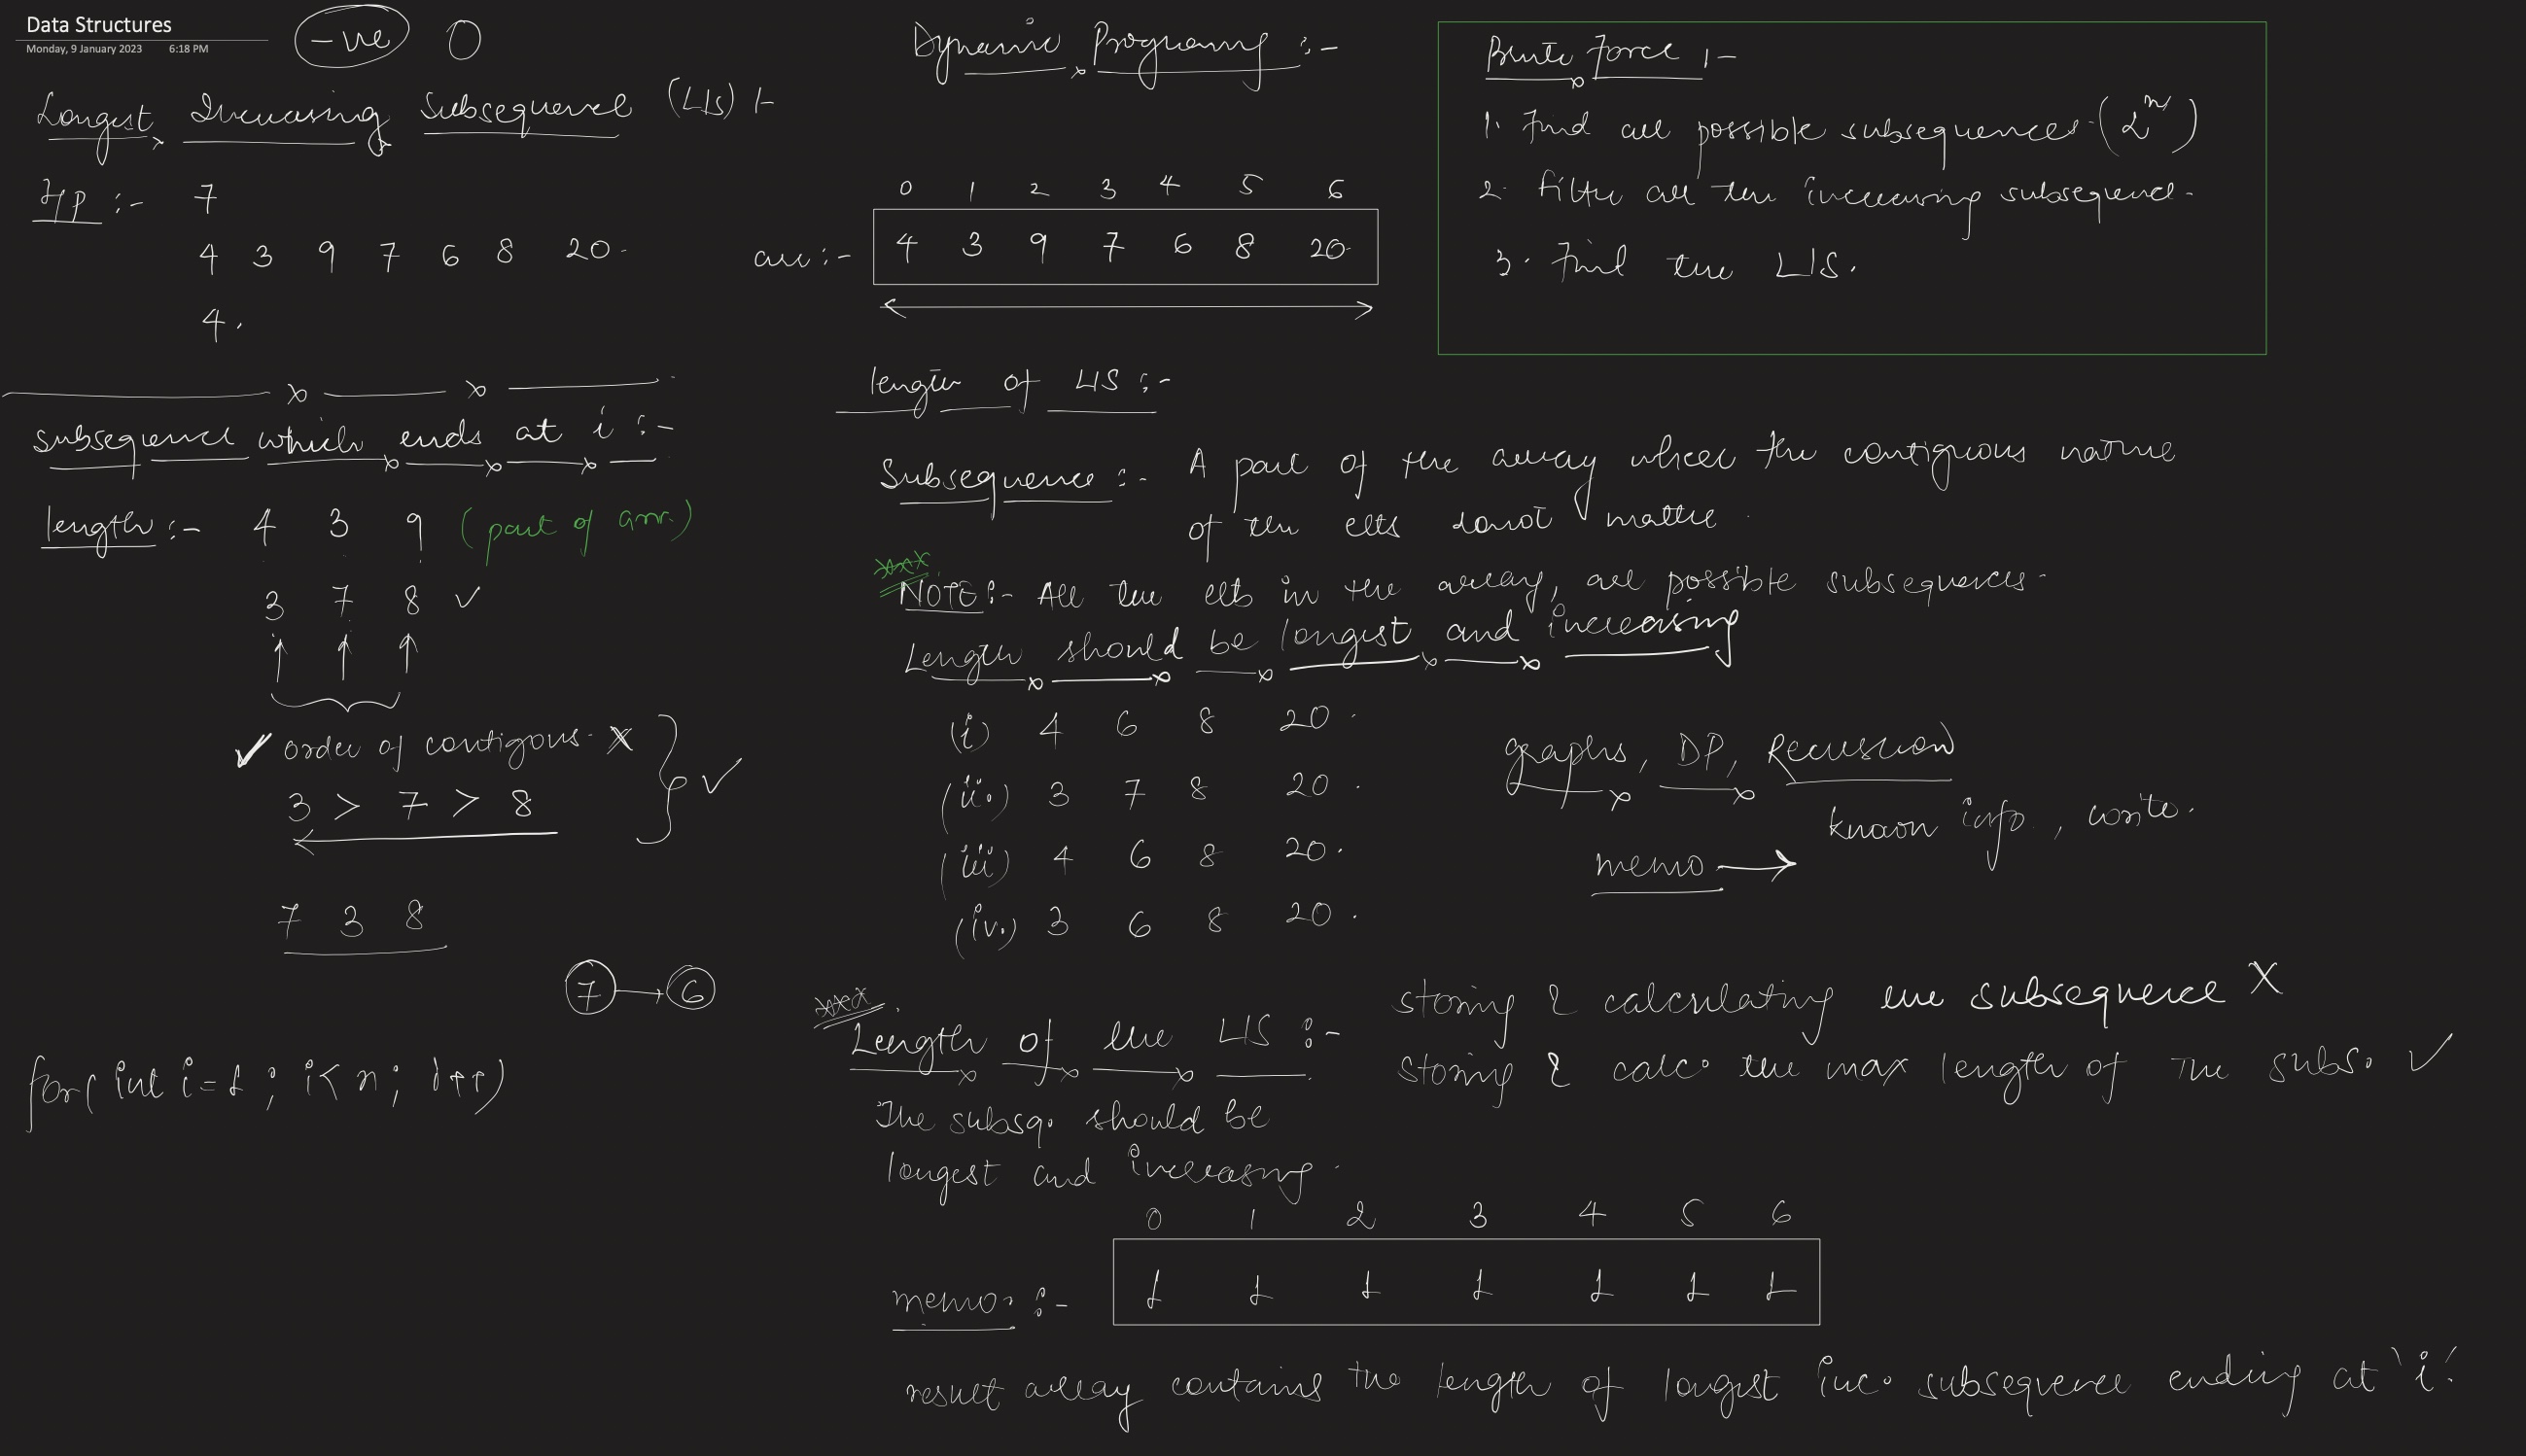 Data Structures
Monday, 9 January 2023 6:18 PM
-ve 0
Longest Increasing Subsequence (LIS) :-
I/P :- 7
4 3 9 7 6 8 20.
4.
subsequence which ends at i :-
length :- 4 3 9 (part of arr.)
3 7 8 ✓
✓ order of contigous. X
3 > 7 > 8 ✓
7 3 8
7 → 6
for( int i=1 ; i< n; i++)
Dynamic Programing :-
0 1 2 3 4 5 6
arr :- 4 3 9 7 6 8 20.
length of LIS :-
Subsequence :- A part of the array where the contiguous nature
of the elts donot matter.
NOTE :- All the elts in the array, are possible subsequences.
Length should be longest and increasing
(i) 4 6 8 20.
(ii.) 3 7 8 20.
(iii) 4 6 8 20.
(iv.) 3 6 8 20.
graphs, DP, Recussion
known info, write.
memo →
Length of the LIS :-
The subsq. should be
longest and increasing.
storing & calculating the subsequence X
storing & calc. the max length of the subs. ✓
0 1 2 3 4 5 6
memo. :- 1 1 1 1 1 1 1
result array contains the length of longest inc. subsequence ending at 'i'.
Brute Force :-
1. Find all possible subsequences. (2^n)
2. Filter all the increasing subsequence.
3. Find the LIS.